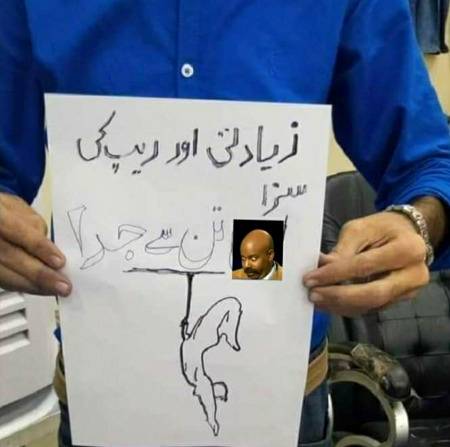 زیادتی اور ریپ کی
سزا
تن سے جدا